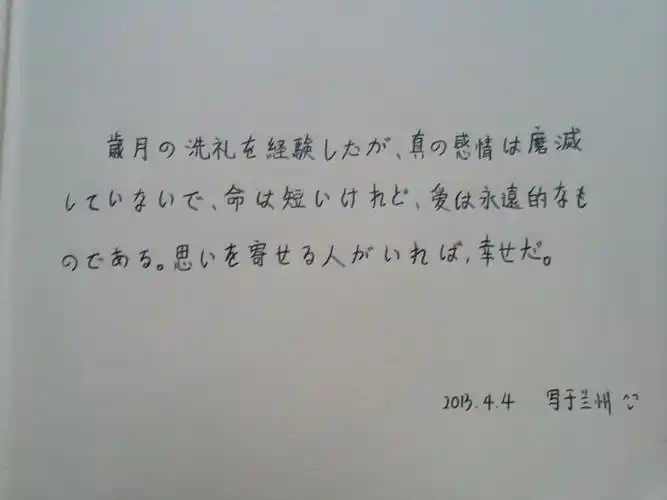 歳月の洗礼を経験したが、真の感情は磨滅
していないで、命は短いけれど、愛は永遠的なも
のである。思いを寄せる人がいれば、幸せだ。
2013.4.4 写于兰州 ^-^